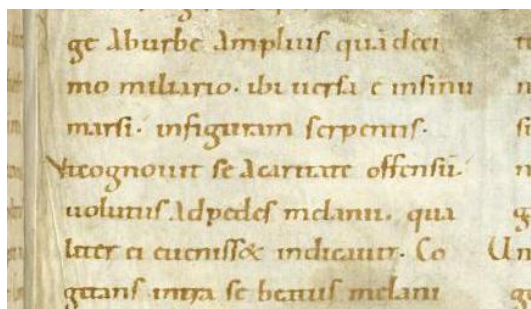 ge aburbe amplius quā deci
mo miliario. ibi uersa ē insinu
marsi. infiguram serpentis.
Vtcognouit se acaritate offensū.
uolutus adpedes melanii. qua
liter ei eueniss& indicauit. Co
gitans intra se beatus melani